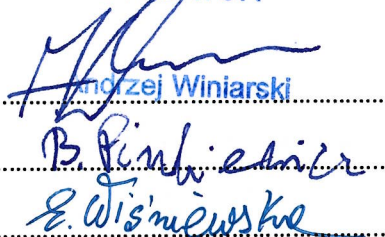 Andrzej Winiarski
B. Pinkiewicz
E. Wiśniewska